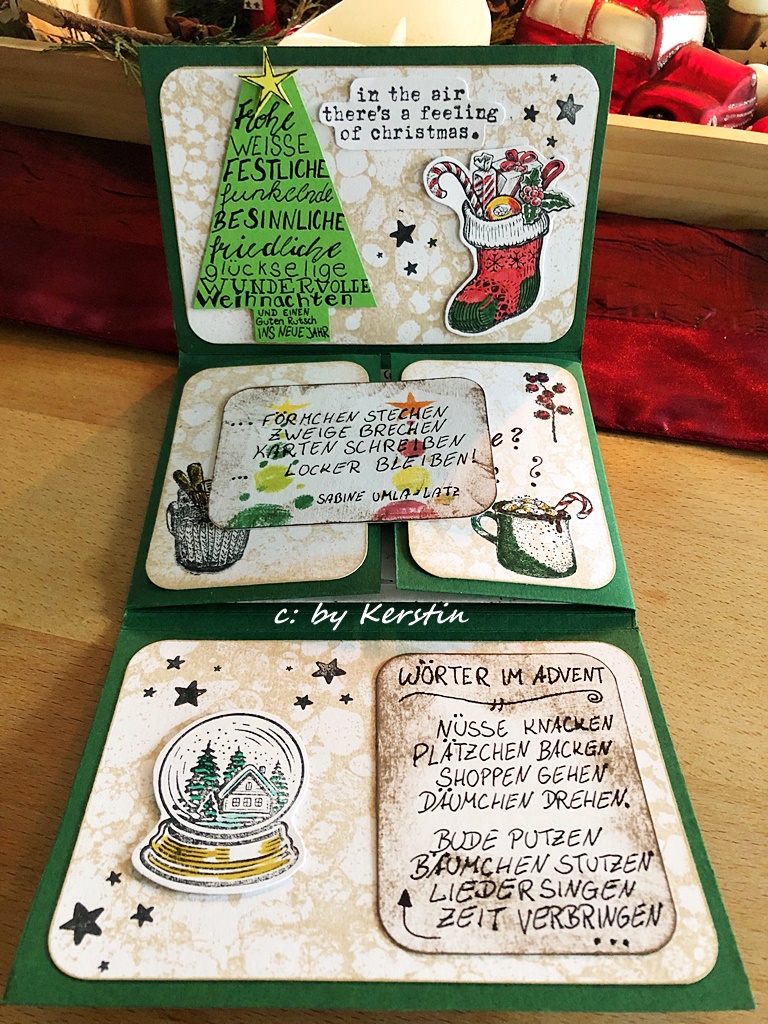 Frohe
WEISSE
FESTLICHE
funkelnde
BESINNLICHE
friedliche
glückselige
WUNDERVOLLE
Weihnachten
UND EINEN
Guten Rutsch
INS NEUE JAHR
in the air
there's a feeling
of christmas.
.... FÖRMCHEN STECHEN
ZWEIGE BRECHEN
KARTEN SCHREIBEN
... LOCKER BLEIBEN!
SABINE
e?
?
?
c: by Kerstin
WÖRTER IM ADVENT
NÜSSE KNACKEN
PLÄTZCHEN BACKEN
SHOPPEN GEHEN
DÄUMCHEN DREHEN.
BUDE PUTZEN
BÄUMCHEN STUTZEN
LIEDER SINGEN
ZEIT VERBRINGEN
...